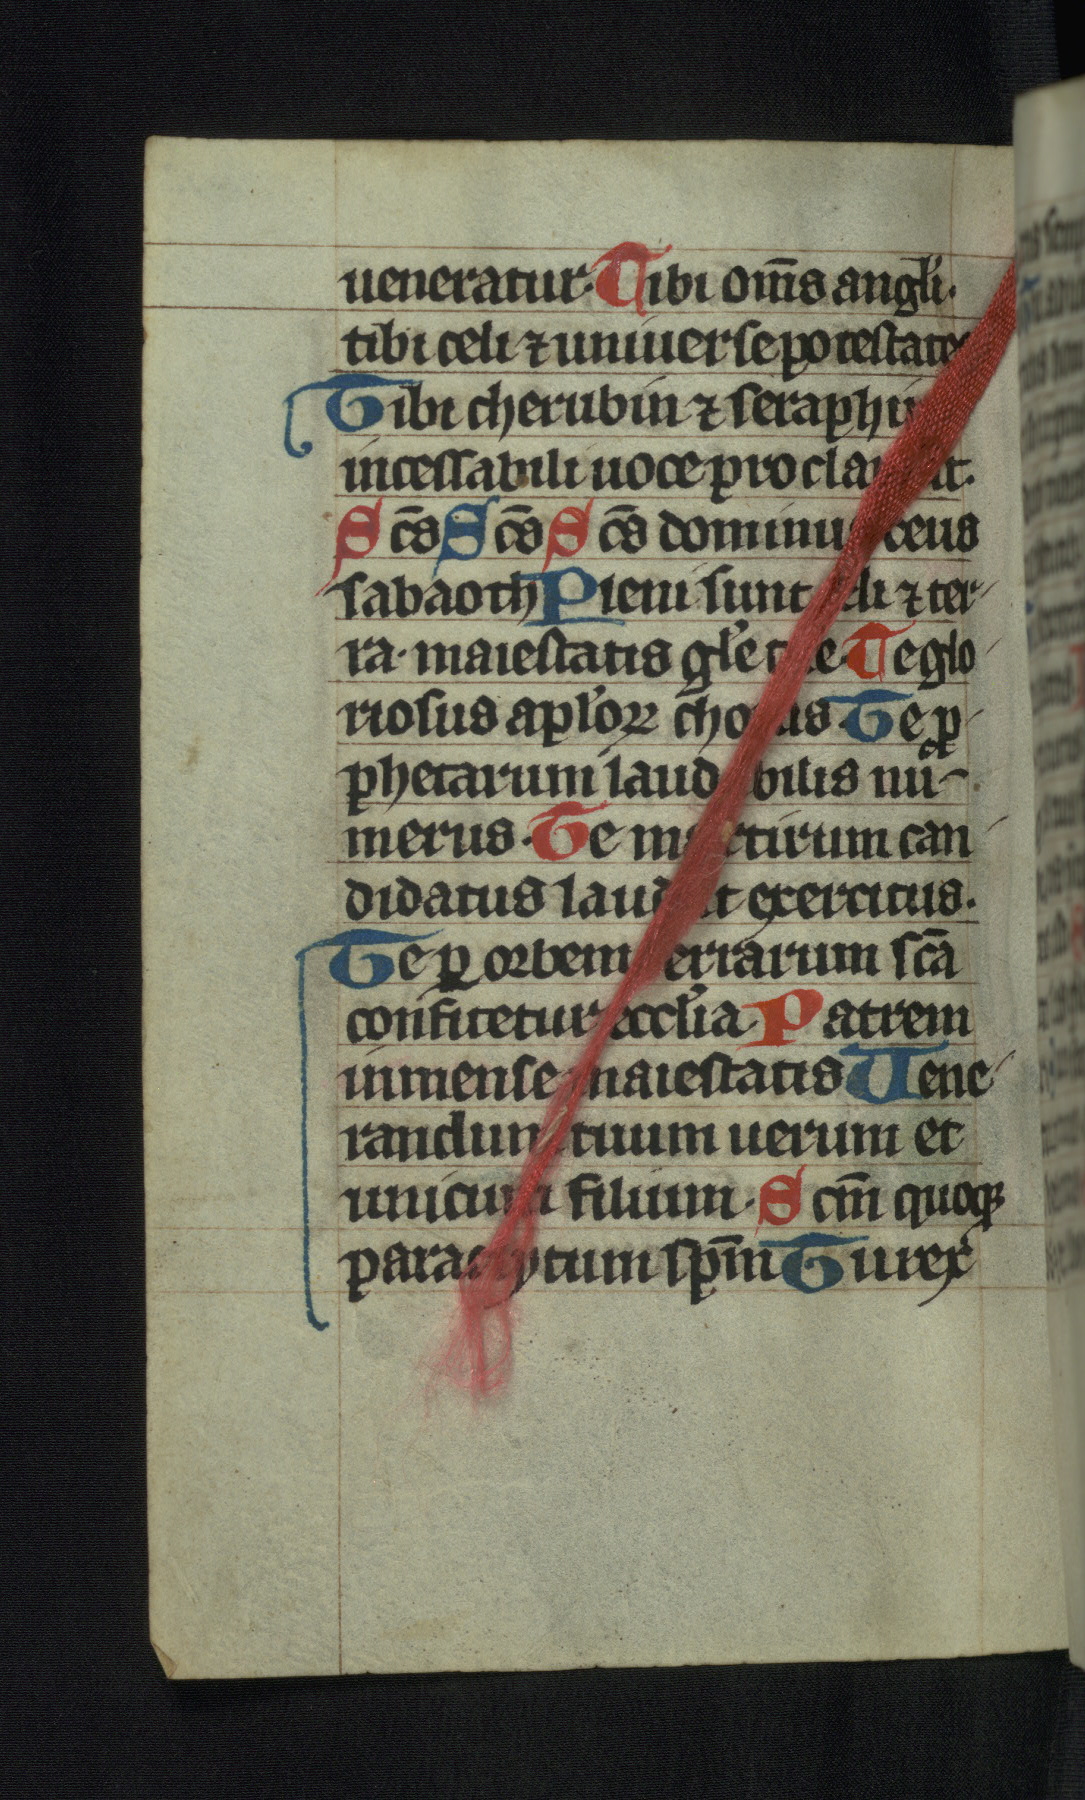 ueneratur. Tibi om̄s angl̓i.
tibi celi ⁊ uniuerse potestates
Tibi cherubin ⁊ seraphin
incessabili uoce proclamant.
Sc̄s Sc̄s Sc̄s dominus deus
sabaoth Pleni sunt celi ⁊ ter
ra. maiestatis gl̓e tue. Te glo
riosus apl̓oꝝ chorus. Te ꝓ
phetarum laudabilis nu
merus. Te martirum can
didatus laudat exercitus.
Te ꝑ orbem terrarum sc̄a
confitetur eccl̓ia. Patrem
inmense maiestatis Uene
randum tuum uerum et
unicum filium. Sc̄m quoqꝫ
paraclytum sp̄m Tu rex